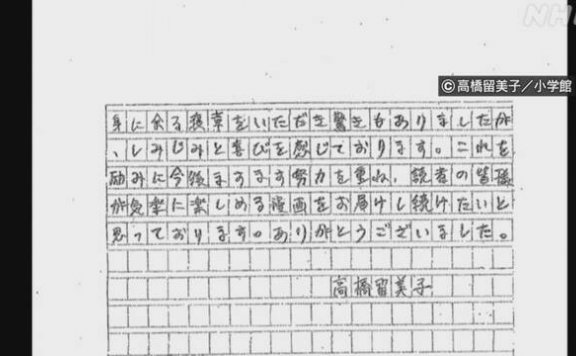 NHK
©高橋留美子／小学館
身に余る褒章をいただき驚きもありましたが
、しみじみと喜びを感じております。これを
励みに今後ますます努力を重ね、読者の皆様
が気楽に楽しめる漫画をお届けし続けたいと
思っております。ありがとうございました。
高橋留美子